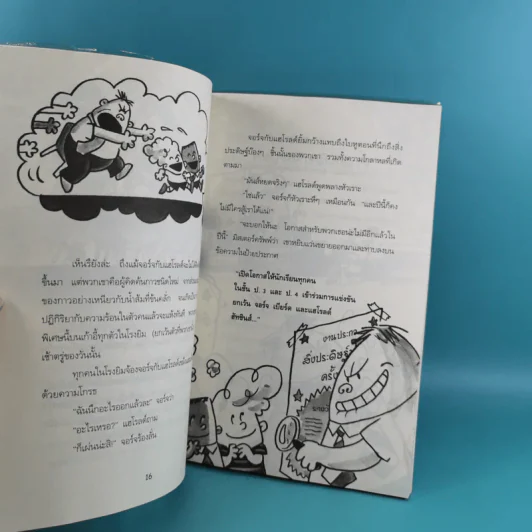 เห็นรึยังล่ะ ถึงแม้จอร์จกับแฮโรลด์จะไม่ได้
ขึ้นมา แต่พวกเขาคือผู้คิดค้นกาวชนิดใหม่
ของกาวอย่างเหนียวกับน้ำส้มที่ข้นคลั่ก
ปฏิกิริยากับความร้อนในตัวคนแล้วจะแห้งทันที
พิเศษนี้บนเก้าอี้ทุกตัวในโรงยิม (ยกเว้น
เช้าตรู่ของวันนั้น
ทุกคนในโรงยิมจ้องจอร์จกับแฮโรลด์
ด้วยความโกรธ
"ฉันนึกอะไรออกแล้วละ" จอร์จว่า
"อะไรเหรอ?" แฮโรลด์ถาม
"ก็เผ่นน่ะสิ!" จอร์จร้องลั่น
16
จอร์จกับแฮโรลด์ยิ้มกว้างแทบถึงใบหูตอนที่นึกถึงสิ่ง
ประดิษฐ์บ๊องๆ ชิ้นนั้นของพวกเขา รวมทั้งความโกลาหลที่เกิด
ตามมา
"มันส์หยดจริงๆ" แฮโรลด์พูดพลางหัวเราะ
"ใช่แล้ว" จอร์จก็หัวเราะหึๆ เหมือนกัน "และปีนี้ก็คง
ไม่มีใครสู้เราได้แน่!"
"จะบอกให้นะ โอกาสสำหรับพวกเธอน่ะไม่มีอีกแล้วใน
ปีนี้" มิสเตอร์ครัพพ์ว่า เขาหยิบแว่นขยายออกมาและทาบลงบน
ข้อความในป้ายประกาศ
"เปิดโอกาสให้นักเรียนทุกคน
ในชั้น ป.3 และ ป.4 เข้าร่วมการแข่งขัน
ยกเว้น จอร์จ เบียร์ด และแฮโรลด์
ฮัทชินส์..."
งานประกวด
สิ่งประดิษฐ์
ครั้ง